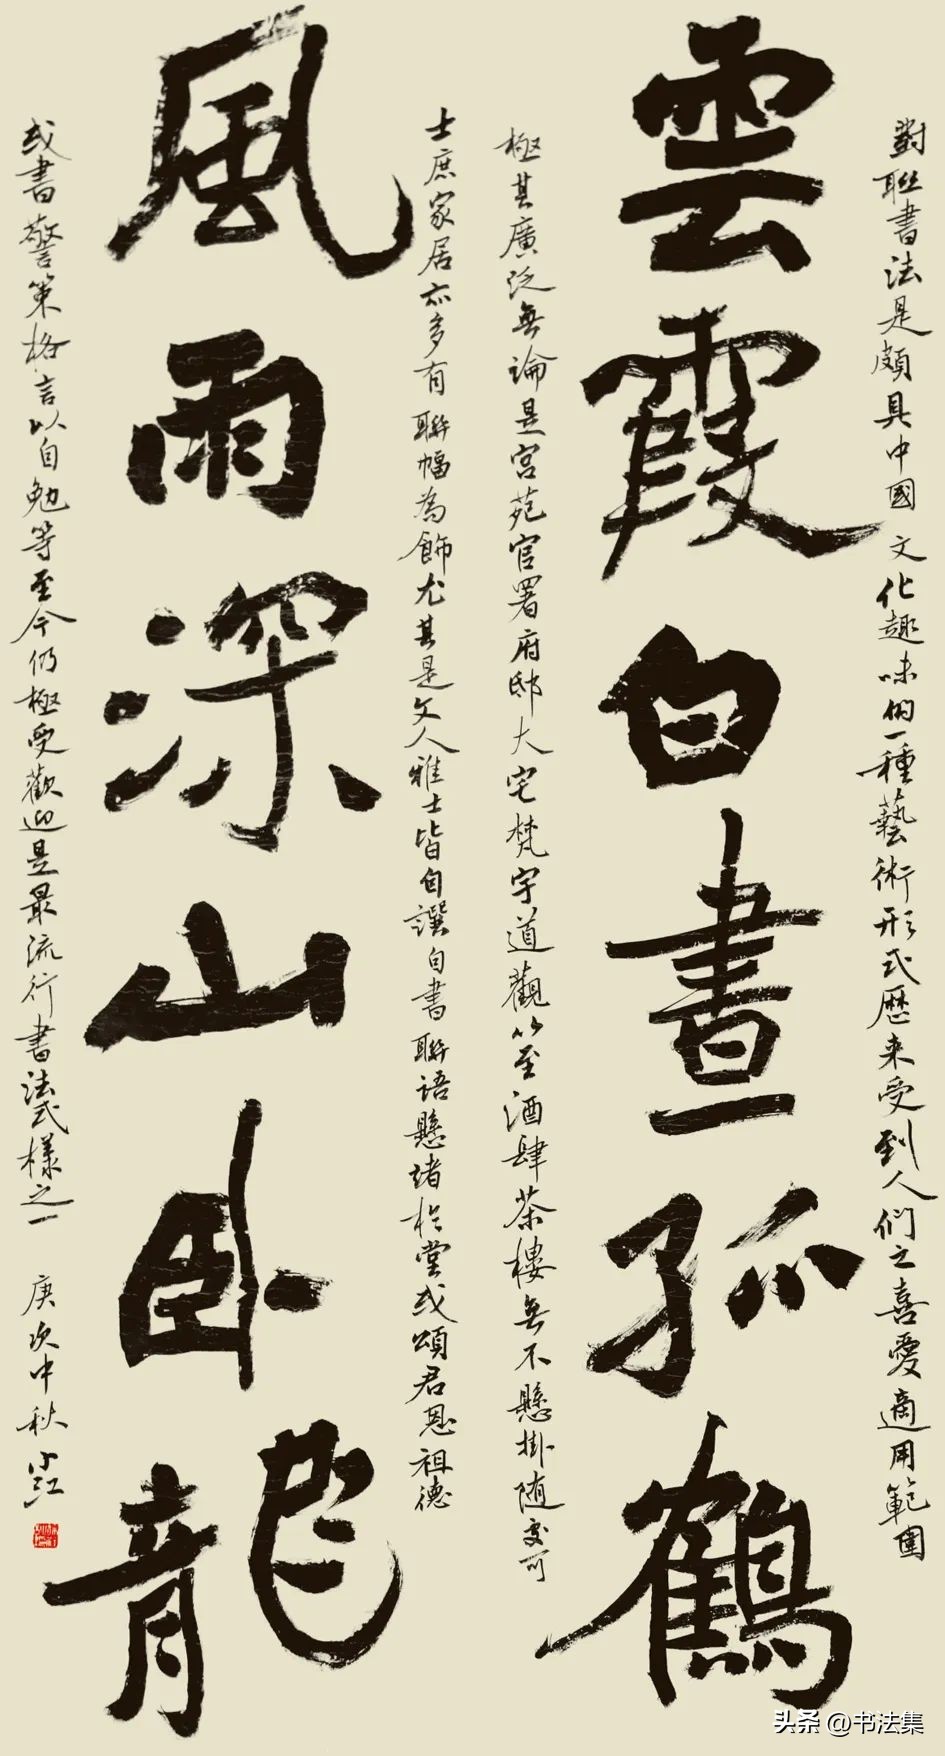 對聯書法是頗具中國文化趣味的一種藝術形式歷来受到人們之喜愛適用範圍
雲霞白晝孤鶴
極其廣泛無論是宮苑官署府邸大宅梵宇道觀以至酒肆茶樓無不懸掛随處可
士庶家居亦多有聯幅為飾尤其是文人雅士皆自譔自書聯语懸堵於堂或頌君恩祖德
風雨深山卧龍
或書警策格言以自勉等至今仍極受歡迎是最流行書法式樣之一 庚次中秋
头条 @书法集